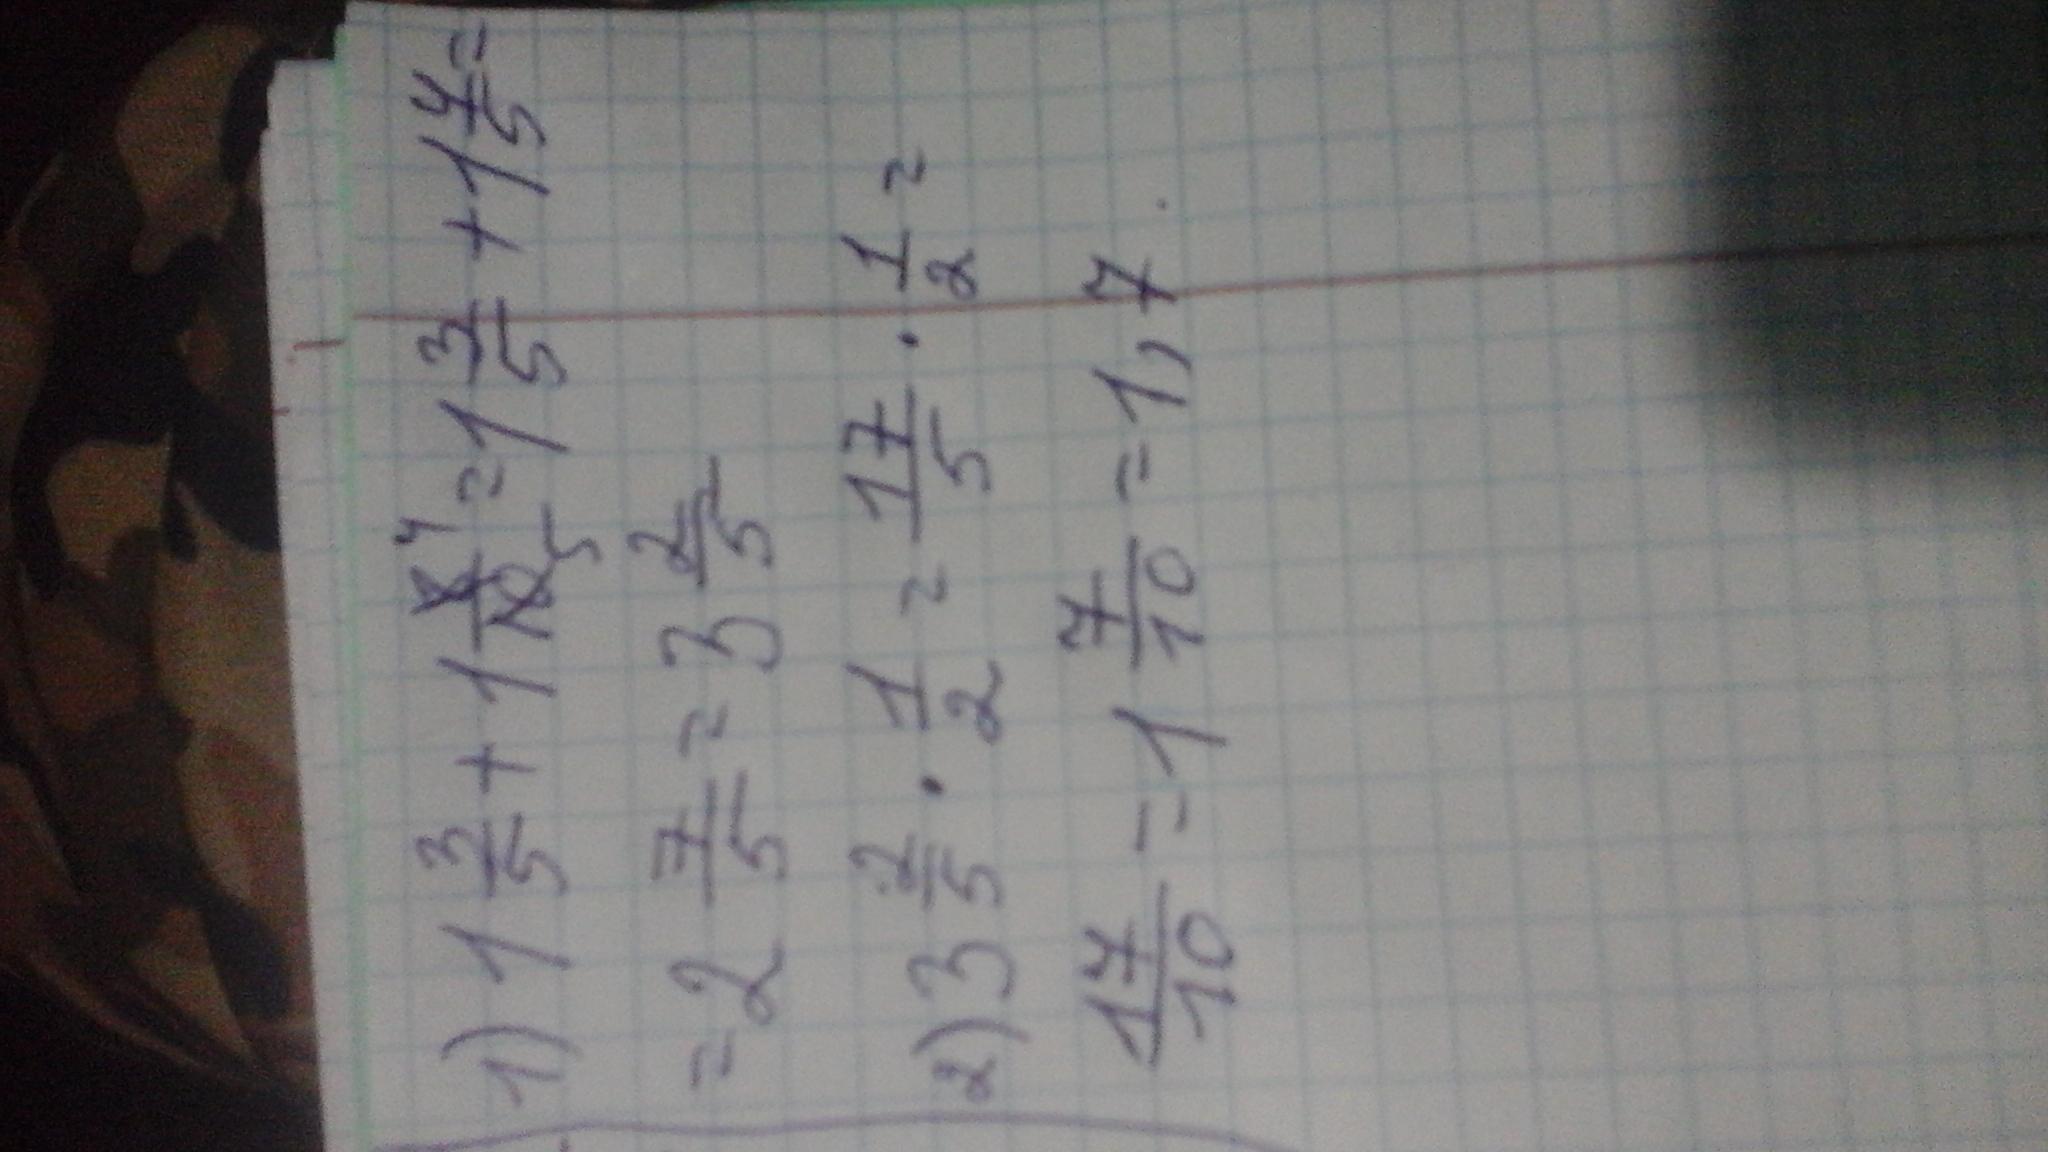 1) 1 3/5 + 1 8/10 4/5 = 1 3/5 + 1 4/5 =
= 2 7/5 = 3 2/5
2) 3 2/5 · 1/2 = 17/5 · 1/2 =
17/10 = 1 7/10 = 1,7